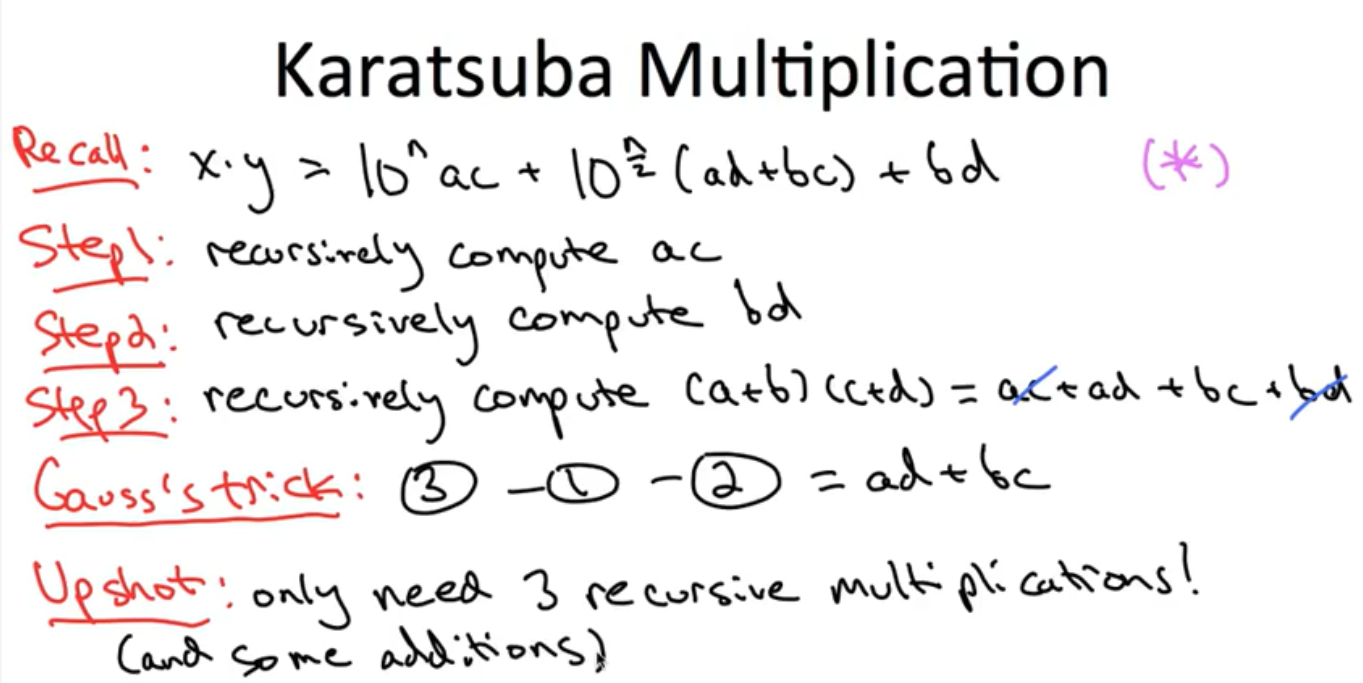 Karatsuba Multiplication
Recall: x·y = 10ⁿac + 10^(n/2) (ad+bc) + bd (*)
Step1: recursively compute ac
Step2: recursively compute bd
Step3: recursively compute (a+b)(c+d) = ac+ad+bc+bd
Gauss's trick: ③ - ① - ② = ad+bc
Upshot: only need 3 recursive multiplications!
(and some additions)